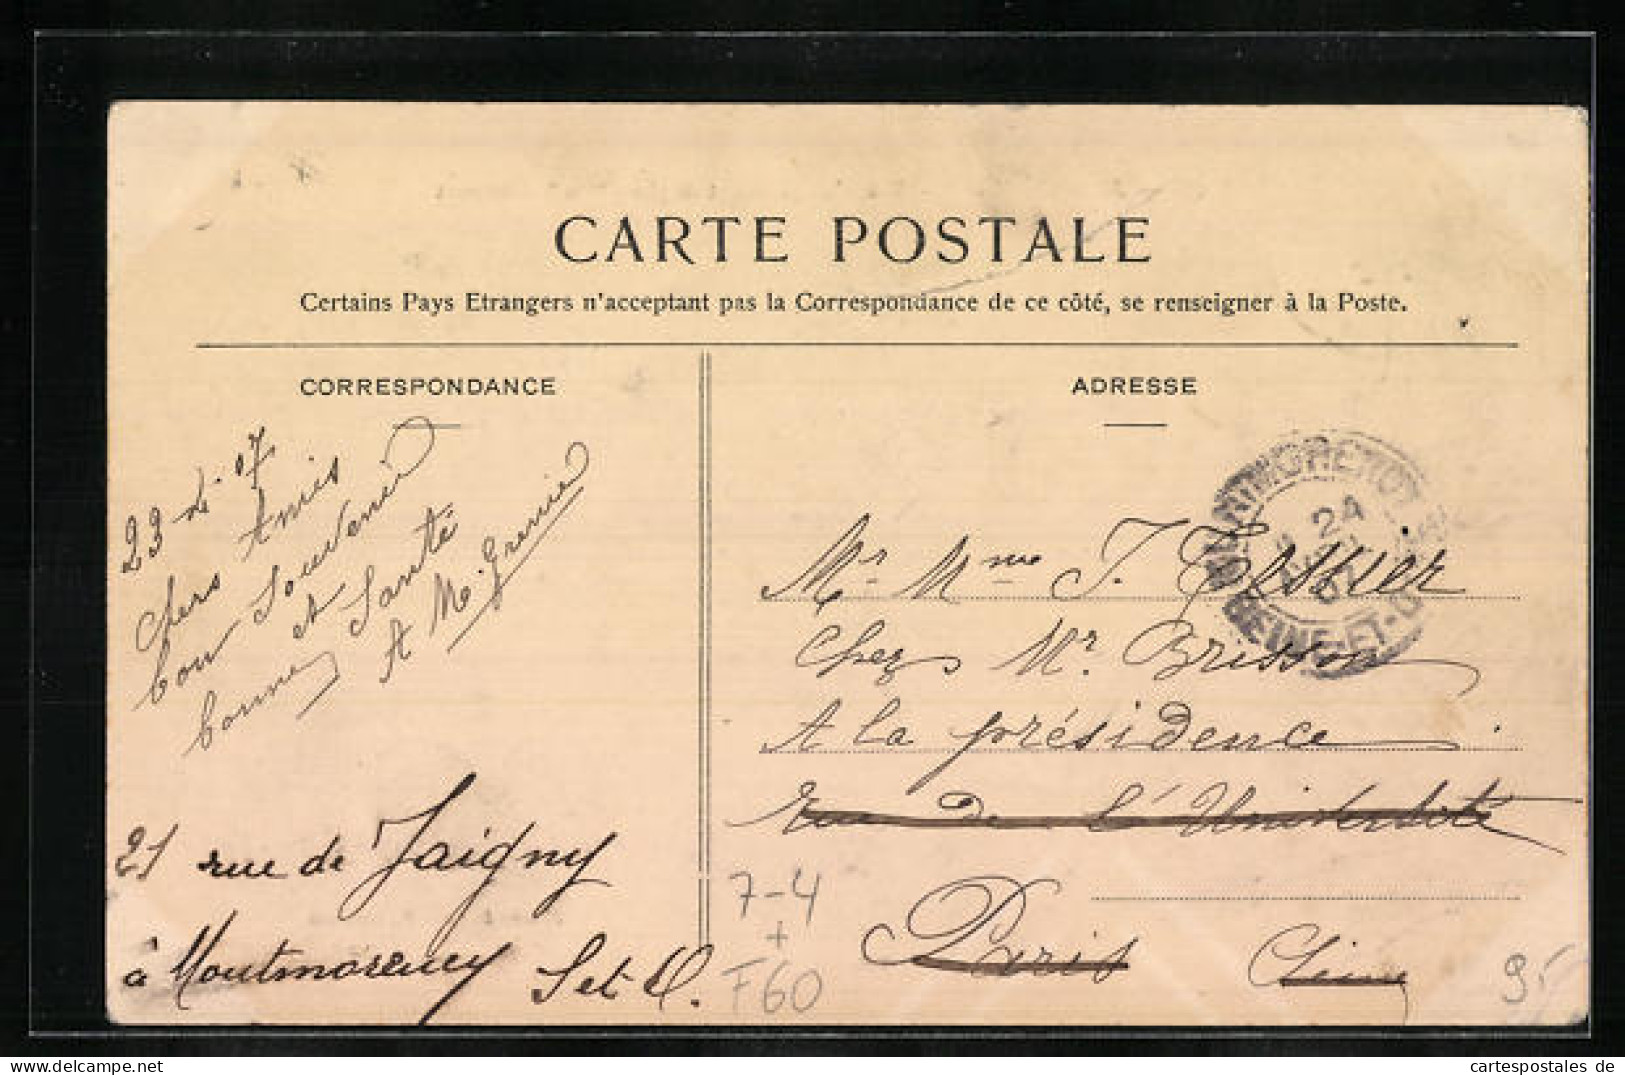 CARTE POSTALE
Certains Pays Etrangers n'acceptant pas la Correspondance de ce côté, se renseigner à la Poste.
CORRESPONDANCE
23 07
Chers Amis
bon Souvenir
et
bonne Santé
A M. Grenier
21 rue de Jaigny
à Montmorency S et O.
ADRESSE
24
07
SEINE-ET-O
Mr Mme J. Tessier
Chez Mr. Brisson
A la présidence
rue de l'Université
Paris Seine
7-4
+
F60
95
cartespostales de